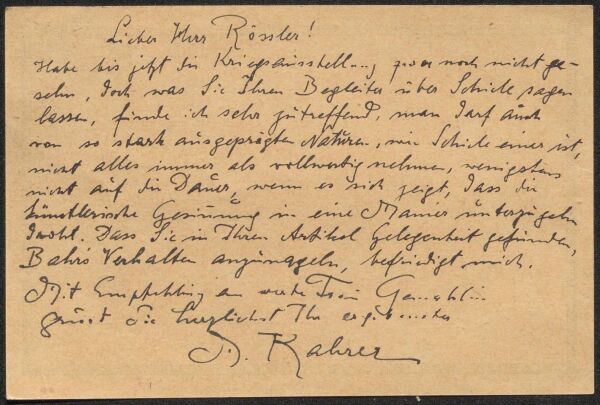 Lieber Herr Rössler!
Habe bis jetzt die Kriegsausstellung zwar noch nicht ge-
sehn, doch was Sie Ihren Begleiter über Schiele sagen
lassen, finde ich sehr zutreffend, man darf auch
von so stark ausgeprägten Naturen, wie Schiele einer ist,
nicht alles immer als vollwertig nehmen, wenigstens
nicht auf die Dauer, wenn es sich zeigt, dass die
künstlerische Gesinnung in eine Manier
droht. Dass Sie in Ihren Artikel Gelegenheit gefunden,
Bahr's Verhalten anzunageln, befriedigt mich.
Mit Empfehlung an werte Frau Gemahlin
grüsst Sie herzlichst Ihr ergebenster
Rahrer